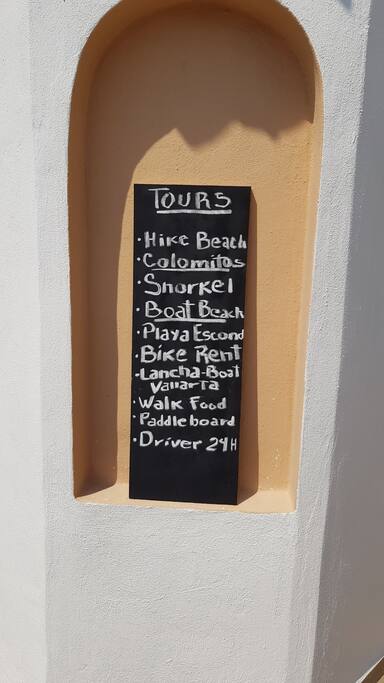 TOURS
· Hike Beach
· Colomitos
· Snorkel
· Boat Beach
· Playa Escond
· Bike Rent
· Lancha-Boat
Vallarta
· Walk Food
· Paddleboard
· Driver 24H